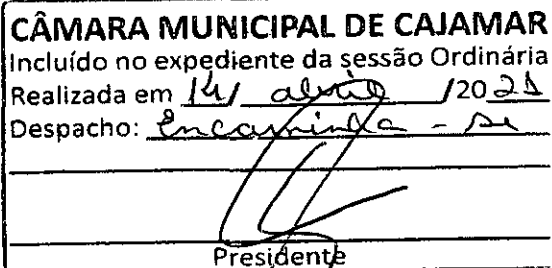 CÂMARA MUNICIPAL DE CAJAMAR
Incluído no expediente da sessão Ordinária
Realizada em 14/ abril /2021
Despacho: Encaminha - se
Presidente